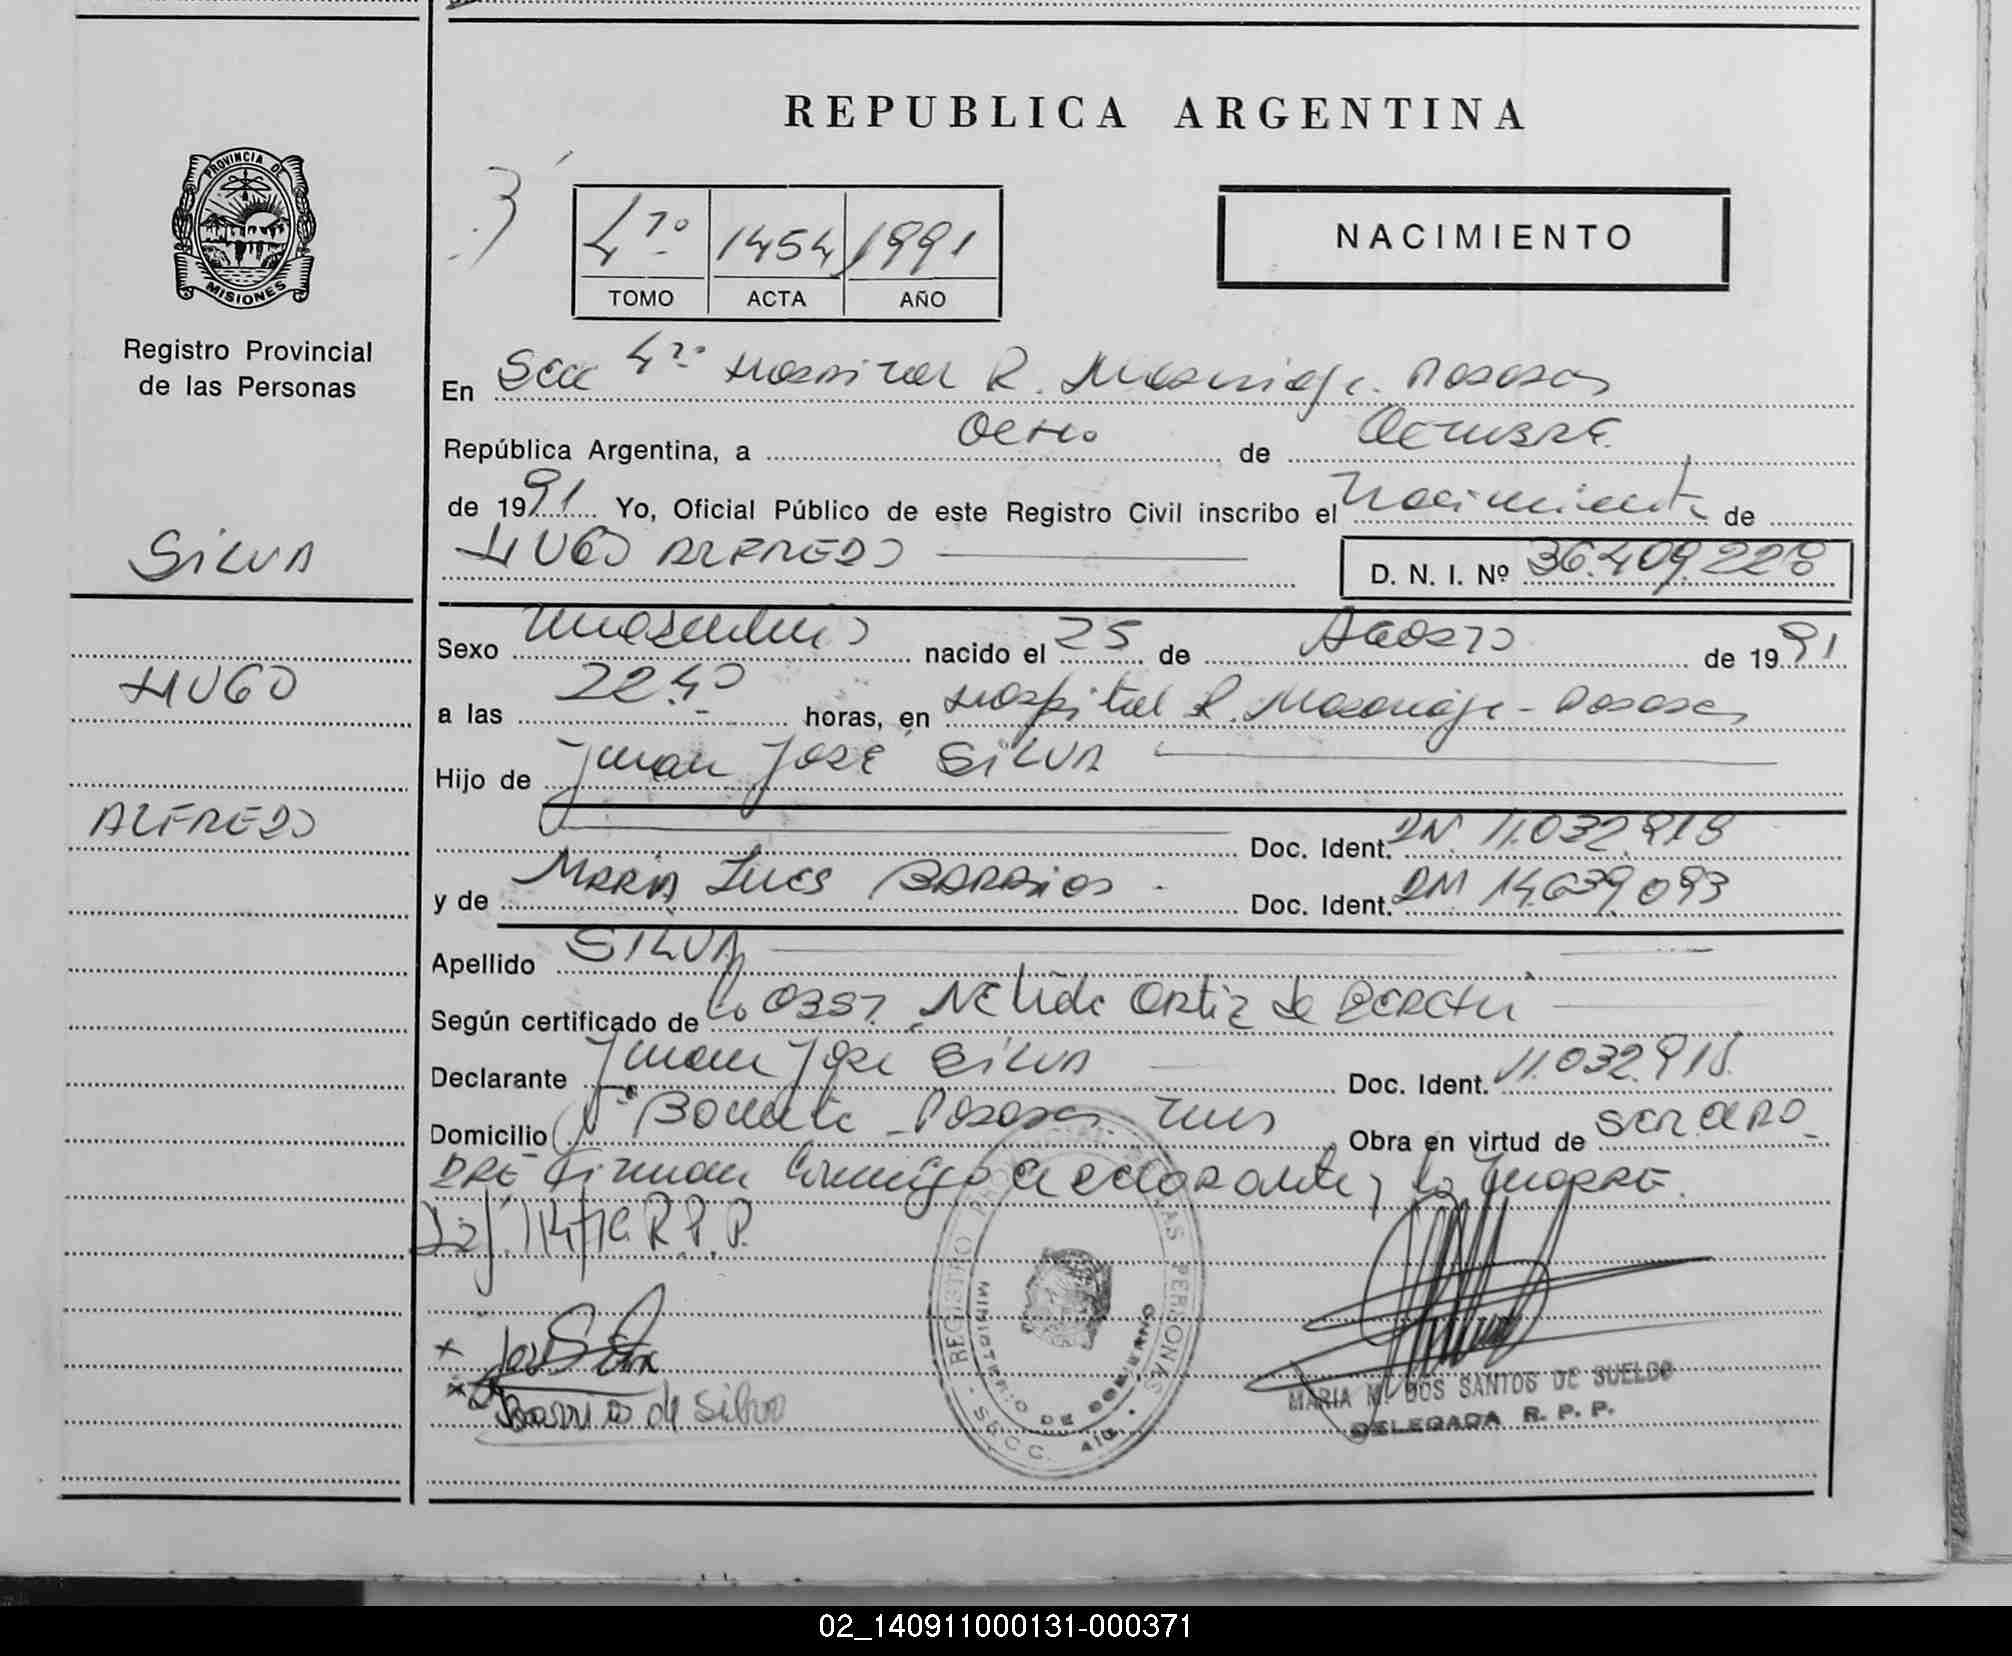 REPUBLICA ARGENTINA
PROVINCIA DE
MISIONES
Registro Provincial
de las Personas
4to 1454 1991
TOMO ACTA AÑO
NACIMIENTO
En Secc 4ta Hospital R. Madariaga. Posadas
República Argentina, a Ocho de Octubre
de 1991 Yo, Oficial Público de este Registro Civil inscribo el Nacimiento de
HUGO ALFREDO
D. N. I. Nº 36.409.228
SILVA
HUGO
ALFREDO
Sexo Masculino nacido el 25 de Agosto de 1991
a las 22.40 horas, en Hospital R. Madariaga - Posadas
Hijo de Juan José SILVA
Doc. Ident. DNI 11.032.918
y de MARIA Lucs BARRIOS Doc. Ident. DNI 14.639.093
Apellido SILVA
Según certificado de la Obst. Nelida Ortiz de
Declarante Juan José SILVA Doc. Ident. 11.032.918
Domicilio Posadas Mnes Obra en virtud de ser el PA
DRE Firman conmigo declarante y la MADRE.
R.P.P.
REGISTRO PERSONAS
MINISTERIO DE GOBIERNO
SECC. 4ta.
Barrios de Silva
MARIA M. DOS SANTOS DE SUELDO
DELEGADA R. P. P.
02_140911000131-000371